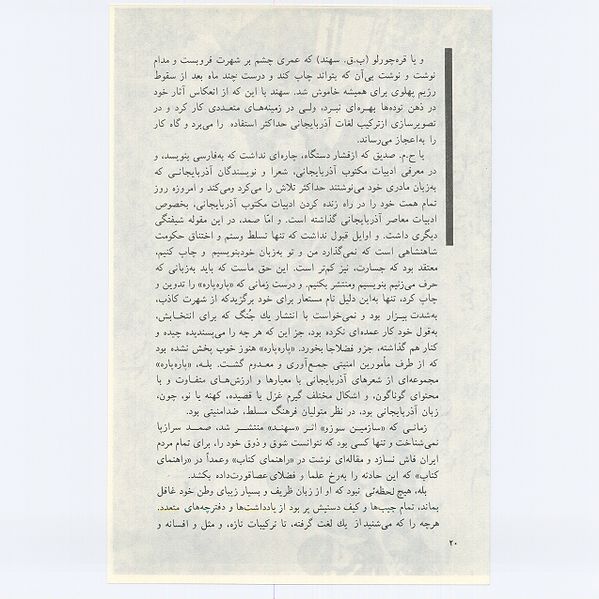 و یا قره‌چورلو (ب.ق. سهند) که عمری چشم بر شهرت فروبست و مدام
نوشت و نوشت بی‌آن که بتواند چاپ کند و درست چند ماه بعد از سقوط
رژیم پهلوی برای همیشه خاموش شد. سهند با این که از انعکاس آثار خود
در ذهن توده‌ها بهره‌ای نبرد، ولی در زمینه‌های متعددی کار کرد و در
تصویرسازی ازترکیب لغات آذربایجانی حداکثر استفاده را می‌برد و گاه کار
را به‌اعجاز می‌رساند.
یا ح.م. صدیق که ازفشار دستگاه، چاره‌ای نداشت که به‌فارسی بنویسد، و
در معرفی ادبیات مکتوب آذربایجانی، شعرا و نویسندگان آذربایجانی که
به‌زبان مادری خود می‌نوشتند حداکثر تلاش را می‌کرد ومی‌کند و امروزه روز
تمام همت خود را در راه زنده کردن ادبیات مکتوب آذربایجانی، بخصوص
ادبیات معاصر آذربایجانی گذاشته است. و امّا صمد، در این مقوله شیفتگی
دیگری داشت. و اوایل قبول نداشت که تنها تسلط وستم و اختناق حکومت
شاهنشاهی است که نمی‌گذارد من و تو به‌زبان خودبنویسیم و چاپ کنیم،
معتقد بود که جسارت، نیز کم‌تر است. این حق ماست که باید به‌زبانی که
حرف می‌زنیم بنویسیم ومنتشر بکنیم. و درست زمانی که «پاره‌پاره» را تدوین و
چاپ کرد، تنها به‌این دلیل نام مستعار برای خود برگزیدکه از شهرت کاذب،
به‌شدت بیزار بود و نمی‌خواست با انتشار یك جُنگ که برای انتخابش،
به‌قول خود کار عمده‌ای نکرده بود، جز این که هر چه را می‌پسندیده چیده و
کنار هم گذاشته، جزو فضلاجا بخورد. «پاره‌پاره» هنوز خوب پخش نشده بود
که از طرف مأمورین امنیتی جمع‌آوری و معدوم گشت. بله، «پاره‌پاره»
مجموعه‌ای از شعرهای آذربایجانی با معیارها و ارزش‌های متفاوت و با
محتوای گوناگون، و اشکال مختلف گیرم غزل یا قصیده، کهنه یا نو، چون،
زبان آذربایجانی بود، در نظر متولیان فرهنگ مسلط، ضدامنیتی بود.
زمانی که «سازیمین سوزو» اثر «سهند» منتشر شد، صمد سرازپا
نمی‌شناخت و تنها کسی بود که نتوانست شوق و ذوق خود را، برای تمام مردم
ایران فاش نسازد و مقاله‌ای نوشت در «راهنمای کتاب» وعمداً در «راهنمای
کتاب» که این حادثه را به‌رخ علما و فضلای عصاقورت‌داده بکشد.
بله، هیچ لحظه‌ئی نبود که او از زبان ظریف و بسیار زیبای وطن خود غافل
بماند، تمام جیب‌ها و کیف دستیش پر بود از یادداشت‌ها و دفترچه‌های متعدد.
هرچه را که می‌شنید از یك لغت گرفته، تا ترکیبات تازه، و مثل و افسانه و
۲۰